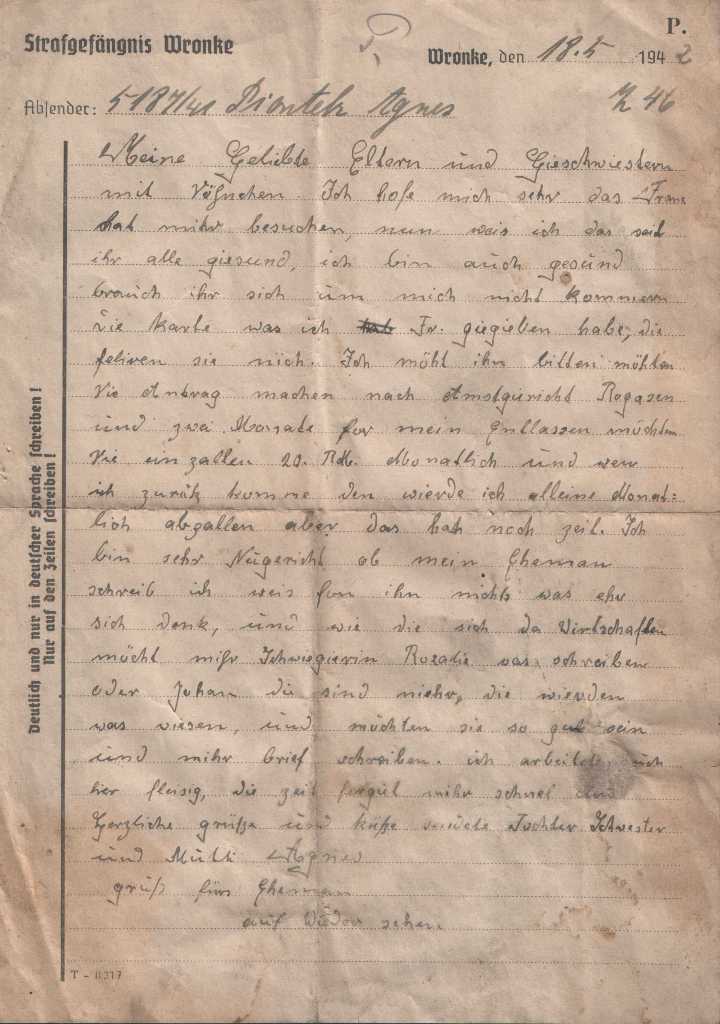 P.
Strafgefängnis Wronke
Wronke, den 18.5 1942
Absender: 5187/41 Piontek Agnes Z 46
Meine Geliebte Eltern und Gieschwiestern
mit Söhnchen. Ich hofe mich sehr das Franz
hat mihr besuchen, nun weis ich das seid
ihr alle giesund, ich bin auch gesund
brauch ihr sich um mich nicht kommern
die karte was ich Fr. giegieben habe, die
feliren sie nich. Ich möht ihn bitten möhten
Sie Antrag machen nach Amstgericht Rogasen
und zwei Monate for mein Entlassen möchten
Sie einzallen 20. RM. Monatlich und wen
ich zurük komme den wierde ich alleine Monat=
lich abzallen aber das hat noch zeit. Ich
bin sehr Nugericht ob mein Eheman
schreib ich weis fon ihn nichts was ehr
sich denk, und wie die sich da Wirtschaften
möcht mihr Schwiegierin Rozalie was schreiben
oder Johan die sind niehr, die wierden
was wiesen, und möchten sie so gut sein
und mihr brief schreiben. ich arbeite auch
hier fleisig, die zeit fergiet mihr schnel
Herzliche grüße und küße sendete Tochter Schwester
und Mutti Agnes
gruß fürs Eheman
auf Wieder sehen
T - 0317
Deutlich und nur in deutscher Sprache schreiben!
Nur auf den Zeilen schreiben!